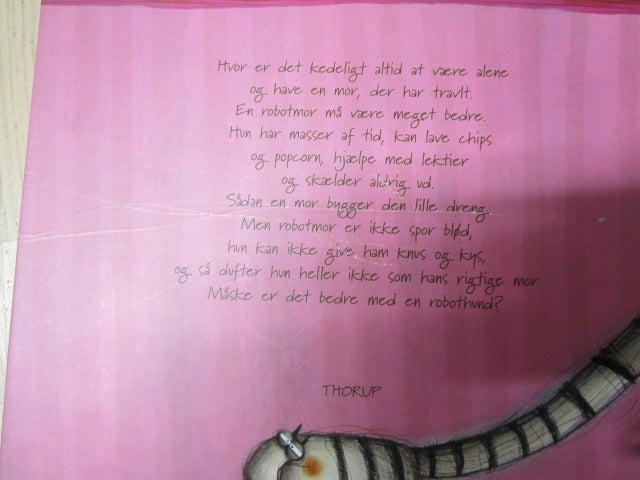 Hvor er det kedeligt altid at være alene
og have en mor, der har travlt.
En robotmor må være meget bedre.
Hun har masser af tid, kan lave chips
og popcorn, hjælpe med lektier
og skælder aldrig ud.
Sådan en mor bygger den lille dreng.
Men robotmor er ikke spor blød,
hun kan ikke give ham knus og kys,
og så dufter hun heller ikke som hans rigtige mor.
Måske er det bedre med en robothund?
THORUP